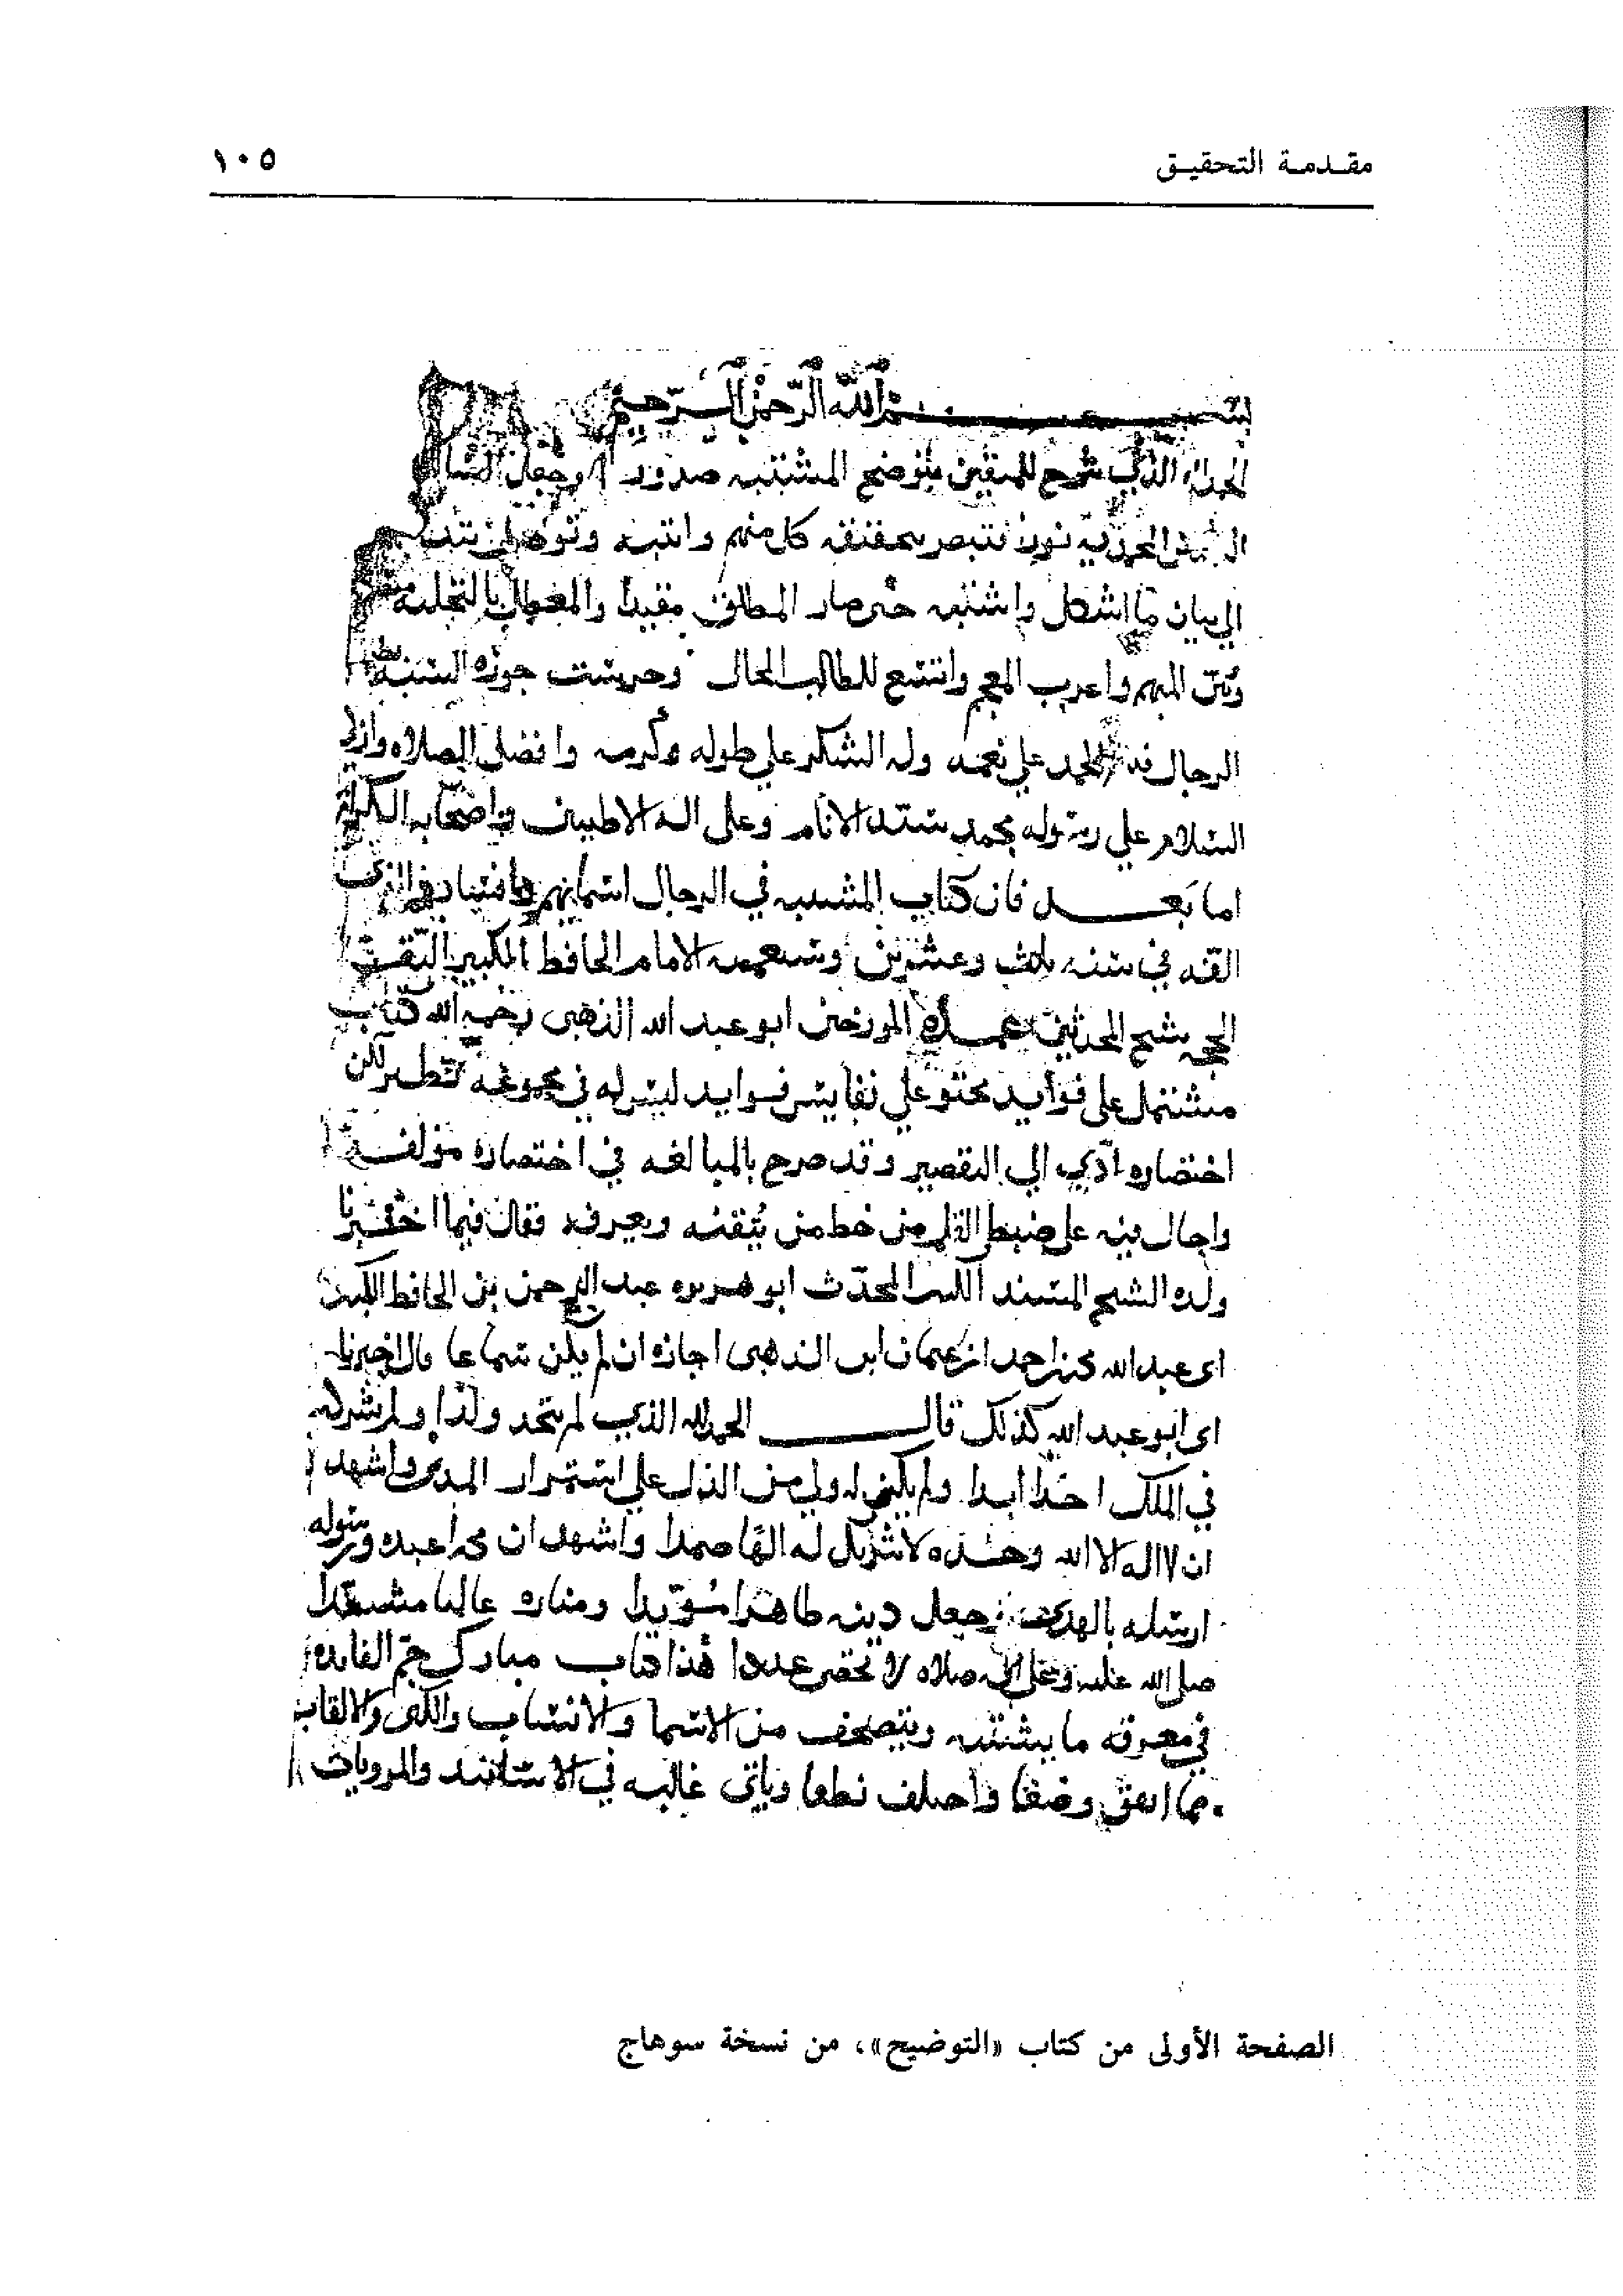 مقدمة التحقيق ١٠٥
بسم الله الرحمن الرحيم
الحمد لله الذي شرح للمتقين بتوضيح المشتبه صدورا وجعل
نورا فتبصر بحقيقته كل منهم وانتبه وتوصل
الي بيان ما اشكل واشتبه حتى صار المطلق مقيدا والمعطل بالتحلية
وبين المبهم واعرب المعجم واتسع للطالب المجال وحرست حوزه السنه
الرجال فله الحمد علي نعمه وله الشكر علي طوله وكرمه وافضل الصلاه وازكى
السلام علي رسوله محمد سيد الانام وعلى اله الاطيبين واصحابه الكرام
اما بعد فان كتاب المشتبه في الرجال اسمايهم وانسابهم الذى
الفه في سنه ثلث وعشرين وسبعميه الامام الحافظ الكبير الثقه
الحجه شيخ المحدثين عمده المورخين ابو عبد الله الذهبى رحمه الله كتاب
مشتمل على فوايد محتو علي نفايس فرايد ليس له في مجموعه نظير لكن
اختصاره ادي الي التقصير وقد صرح بالمبالغه في اختصاره مولفه
واحال فيه على ضبط القلم من خط من يتقنه ويعرفه فقال فيما اخبرنا
ولده الشيخ المسند المحدث ابو هريره عبد الرحمن بن الحافظ الكبير
ابى عبد الله محمد بن احمد بن عثمان ابن الذهبى اجازه ان لم يكن سماعا قال اخبرنا
ابى ابو عبد الله كذلك قال الحمد لله الذي لم يتخذ ولدا ولم يشرك
في الملك احدا ابدا ولم يكن له ولي من الذل علي استمرار المدى واشهد
ان لا اله الا الله وحده لا شريك له الها صمدا واشهد ان محمدا عبده ورسوله
ارسله بالهدى وجعل دينه ظاهرا مويدا ومناره عاليا مشيدا
صلى الله عليه وعلى اله صلاه لا تحصى عددا هذا كتاب مبارك جم الفايده
في معرفه ما يشتبه ويتصحف من الاسما والانساب والكنى والالقاب
مما اتفق وضعا واختلف نطقا وياتى غالبه في الاسانيد والمرويات
الصفحة الأولى من كتاب «التوضيح»، من نسخة سوهاج